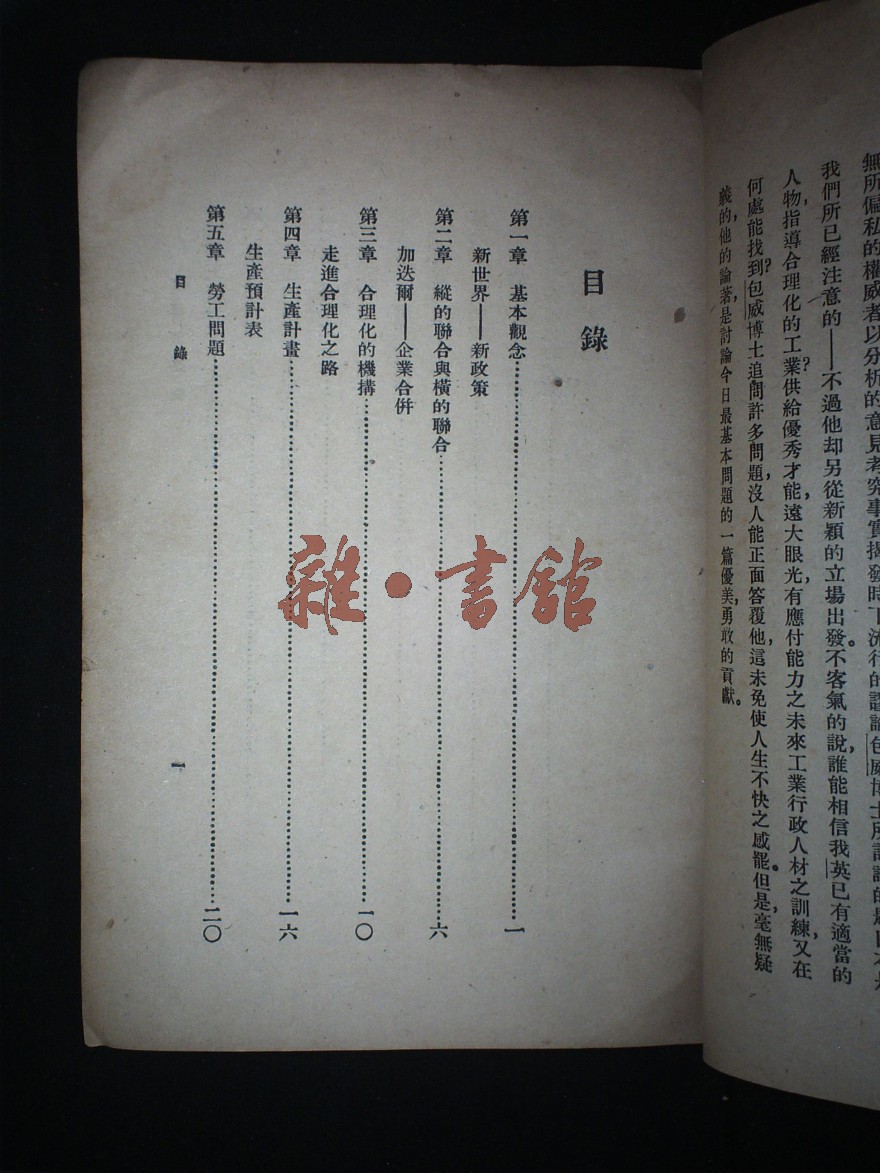 無所偏私的權威者以分析的意見考究事實揭發時下流行的謬論包威博士所討論的是
我們所已經注意的——不過他却另從新穎的立場出發。不客氣的說,誰能相信我英已有適當的
人物,指導合理化的工業?供給優秀才能,遠大眼光,有應付能力之未來工業行政人材之訓練,又在
何處能找到?包威博士追問許多問題,沒人能正面答覆他,這未免使人生不快之感罷。但是,毫無疑
義的,他的論著,是討論今日最基本問題的一篇優美,勇敢的貢獻。
目錄
第一章 基本觀念……一
新世界——新政策
第二章 縱的聯合與橫的聯合……六
加迭爾——企業合併
第三章 合理化的機構……一〇
走進合理化之路
第四章 生產計畫……一六
生產預計表
第五章 勞工問題……二〇
目錄
一
雜·書館